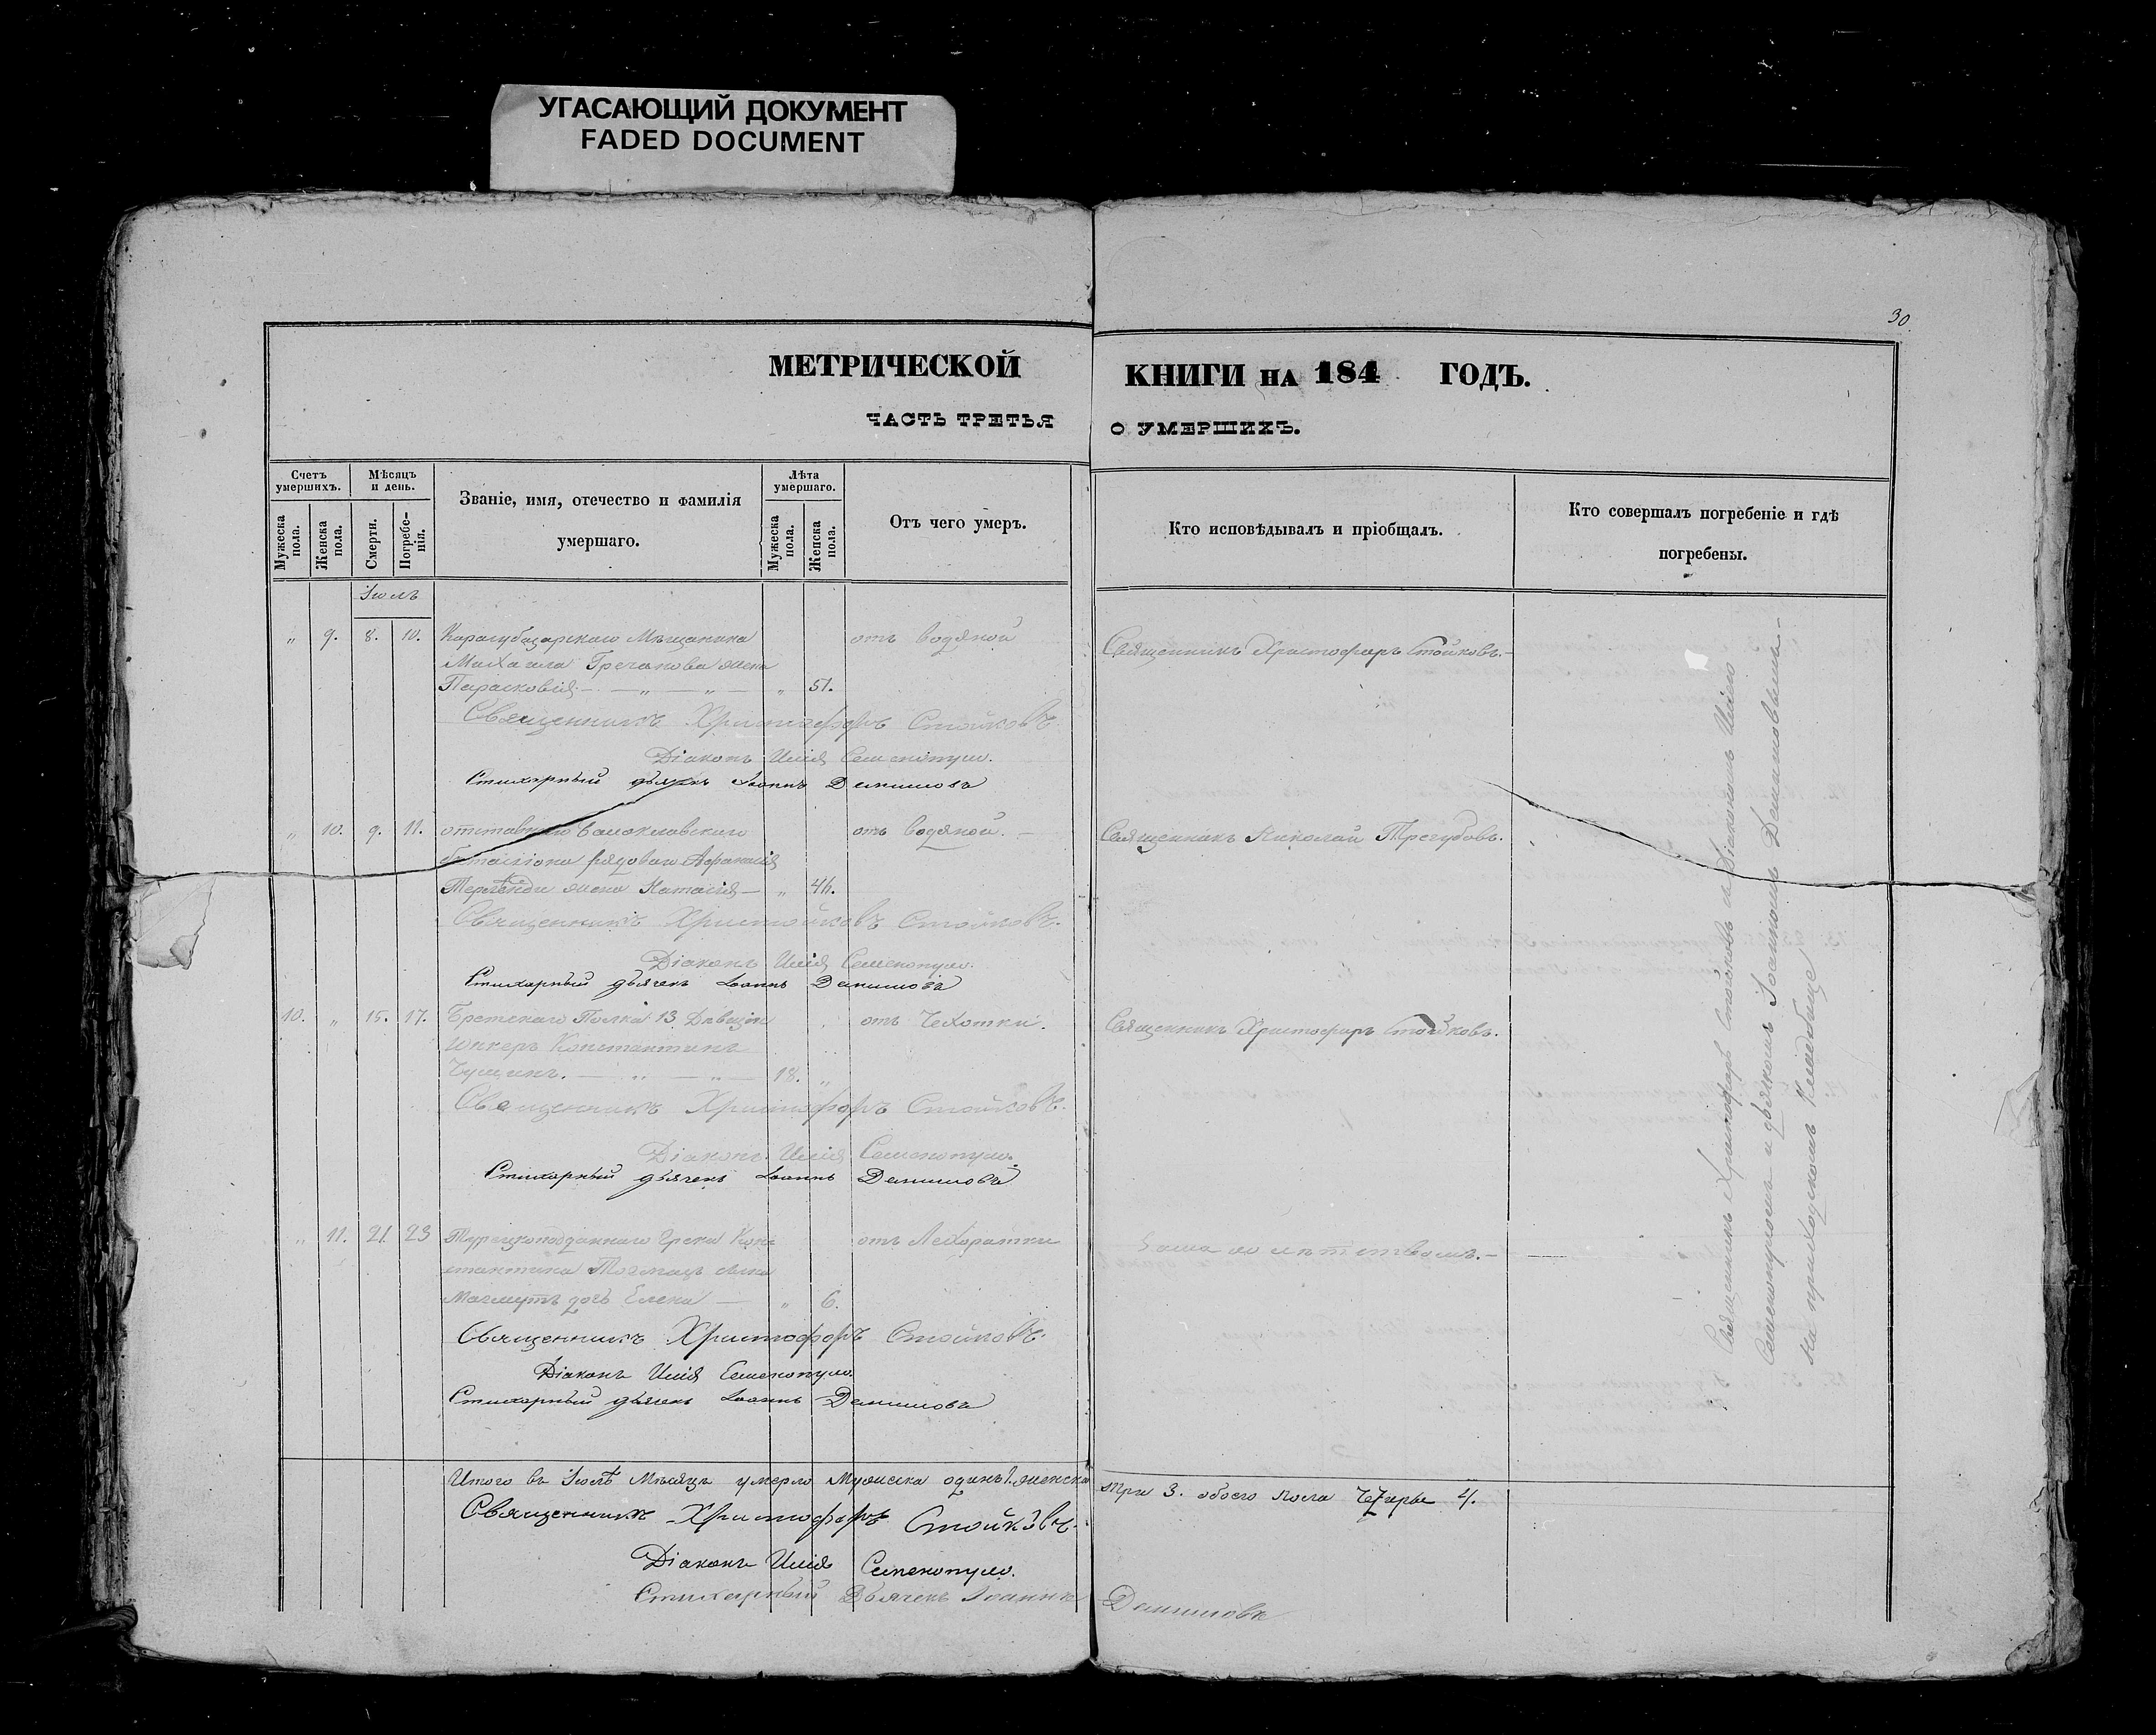 УГАСАЮЩИЙ ДОКУМЕНТ
FADED DOCUMENT
30
МЕТРИЧЕСКОЙ КНИГИ НА 184 ГОДЪ.
ЧАСТЬ ТРЕТЬЯ О УМЕРШИХЪ.
Счетъ умершихъ.
Мужеска пола.
Женска пола.
Мѣсяцъ и день.
Смерти.
Погребенія.
Званіе, имя, отечество и фамилія умершаго.
Лѣта умершаго.
Мужеска пола.
Женска пола.
Отъ чего умеръ.
Кто исповѣдывалъ и пріобщалъ.
Кто совершалъ погребеніе и гдѣ погребены.
Іюль
„ 9. 8. 10. Карасубазарскаго Мѣщанина отъ водяной Священникъ Христофоръ Стойковъ.
Михаила Гречанова жена
Парасковія — „ — „ — „ 51.
Священникъ Христофоръ Стойковъ
Діаконъ Илія Семенопуло.
Стихарный дьячекъ Іоаннъ Даниловъ
„ 10. 9. 11. отставнаго Балаклавскаго отъ водяной. Священникъ Николай Трегубовъ.
баталіона рядоваго Афанасія
жена Наталія — „ 46.
Священникъ Стойковъ.
Діаконъ Илія Семенопуло.
Стихарный дьячекъ Іоаннъ Даниловъ
10. „ 15. 17. Полка 13 Дивизіи отъ Чехотки. Священникъ Христофоръ Стойковъ.
Юнкеръ Константинъ
— „ — „ — 18. „
Священникъ Христофоръ Стойковъ.
Діаконъ Илія Семенопуло.
Стихарный дьячекъ Іоаннъ Даниловъ
„ 11. 21. 23 Турецкоподданнаго Грека Конс отъ Лехоратки
тантина
дочь Елена — „ 6.
Священникъ Христофоръ Стойковъ.
Діаконъ Илія Семенопуло.
Стихарный дьячекъ Іоаннъ Даниловъ
Священникъ Христофоръ Стойковъ съ Діакономъ Иліею
Семенопуломъ и дьячкомъ Іоанномъ Даниловымъ
на приходскомъ Кладбище
Итого въ Іюлѣ Мѣсяцѣ умерло Мужеска одинъ 1. женска три 3. обоего пола Четыре 4.
Священникъ Христофоръ Стойковъ.
Діаконъ Илія Семенопуло.
Стихарный Дьячекъ Іоаннъ Даниловъ